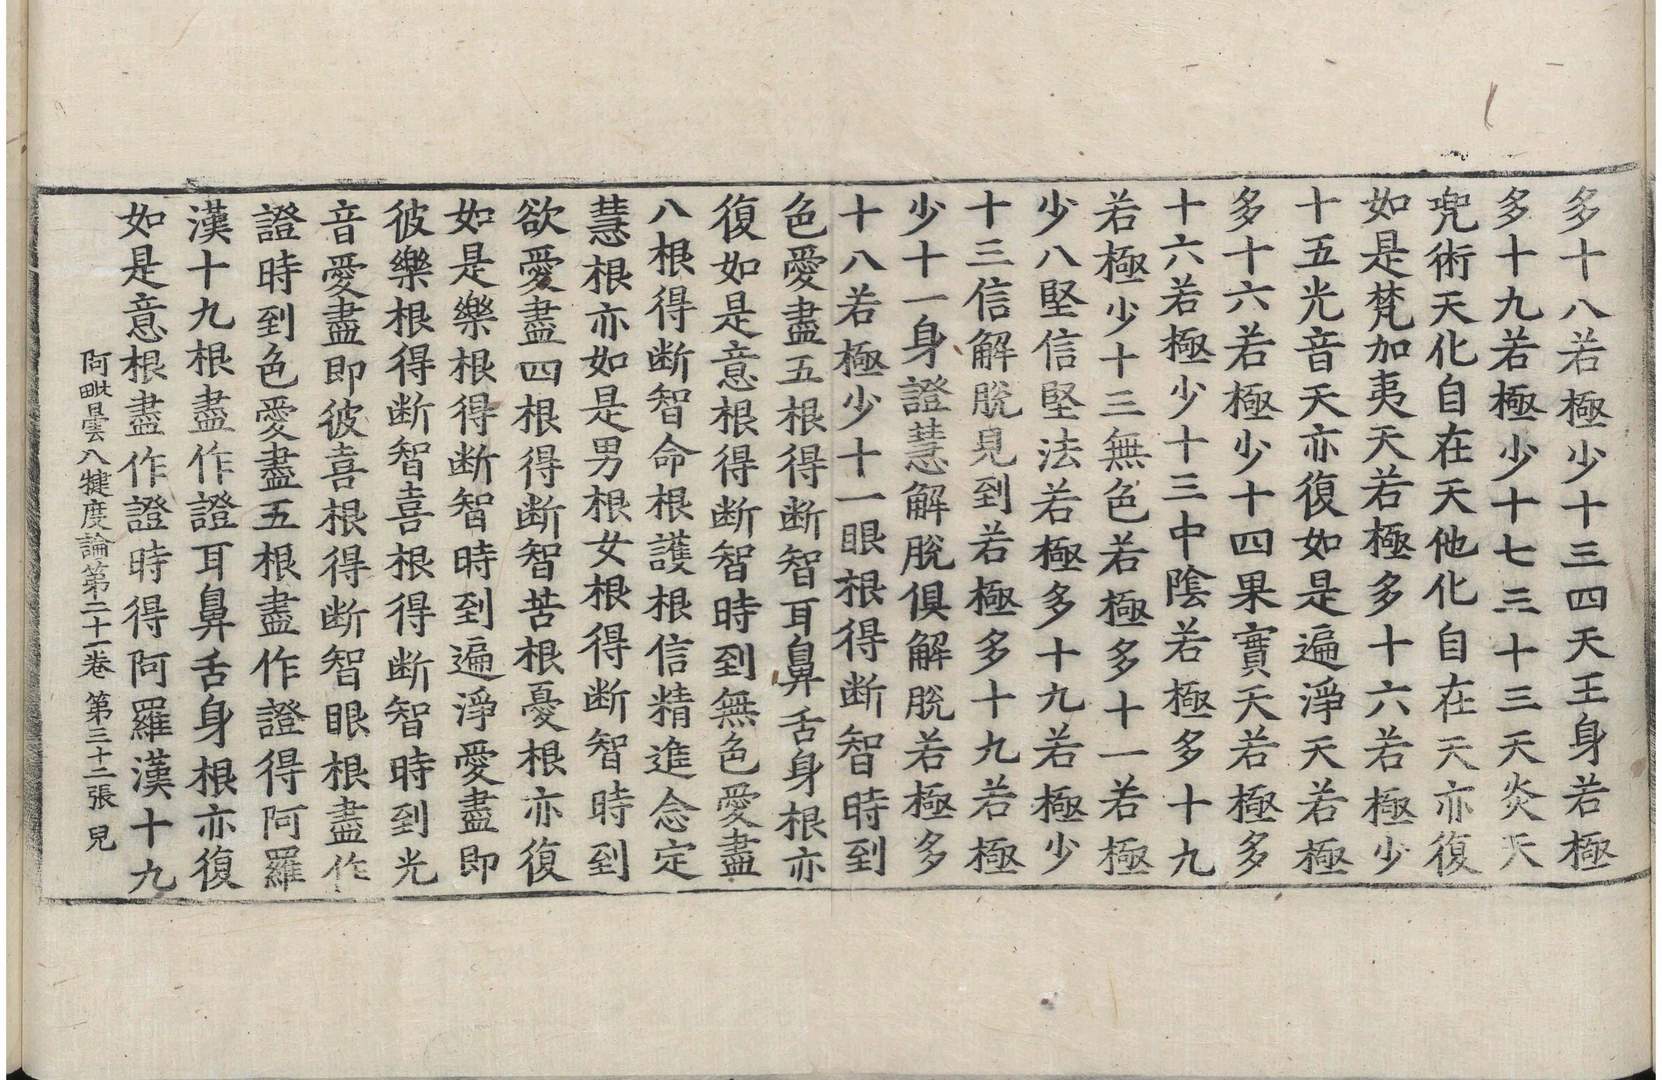 多十八若極少十三四天王身若極
多十九若極少十七三十三天炎天
兜術天化自在天他化自在天亦復
如是梵加夷天若極多十六若極少
十五光音天亦復如是遍淨天若極
多十六若極少十四果實天若極多
十六若極少十三中陰若極多十九
若極少十三無色若極多十一若極
少八堅信堅法若極多十九若極少
十三信解脫見到若極多十九若極
少十一身證慧解脫俱解脫若極多
十八若極少十一眼根得断智時到
色愛盡五根得断智耳鼻舌身根亦
復如是意根得断智時到無色愛盡
八根得断智命根護根信精進念定
慧根亦如是男根女根得断智時到
欲愛盡四根得断智苦根憂根亦復
如是樂根得断智時到遍淨愛盡即
彼樂根得断智喜根得断智時到光
音愛盡即彼喜根得断智眼根盡作
證時到色愛盡五根盡作證得阿羅
漢十九根盡作證耳鼻舌身根亦復
如是意根盡作證時得阿羅漢十九
阿毗曇八犍度論第二十一卷 第三十二張 兒